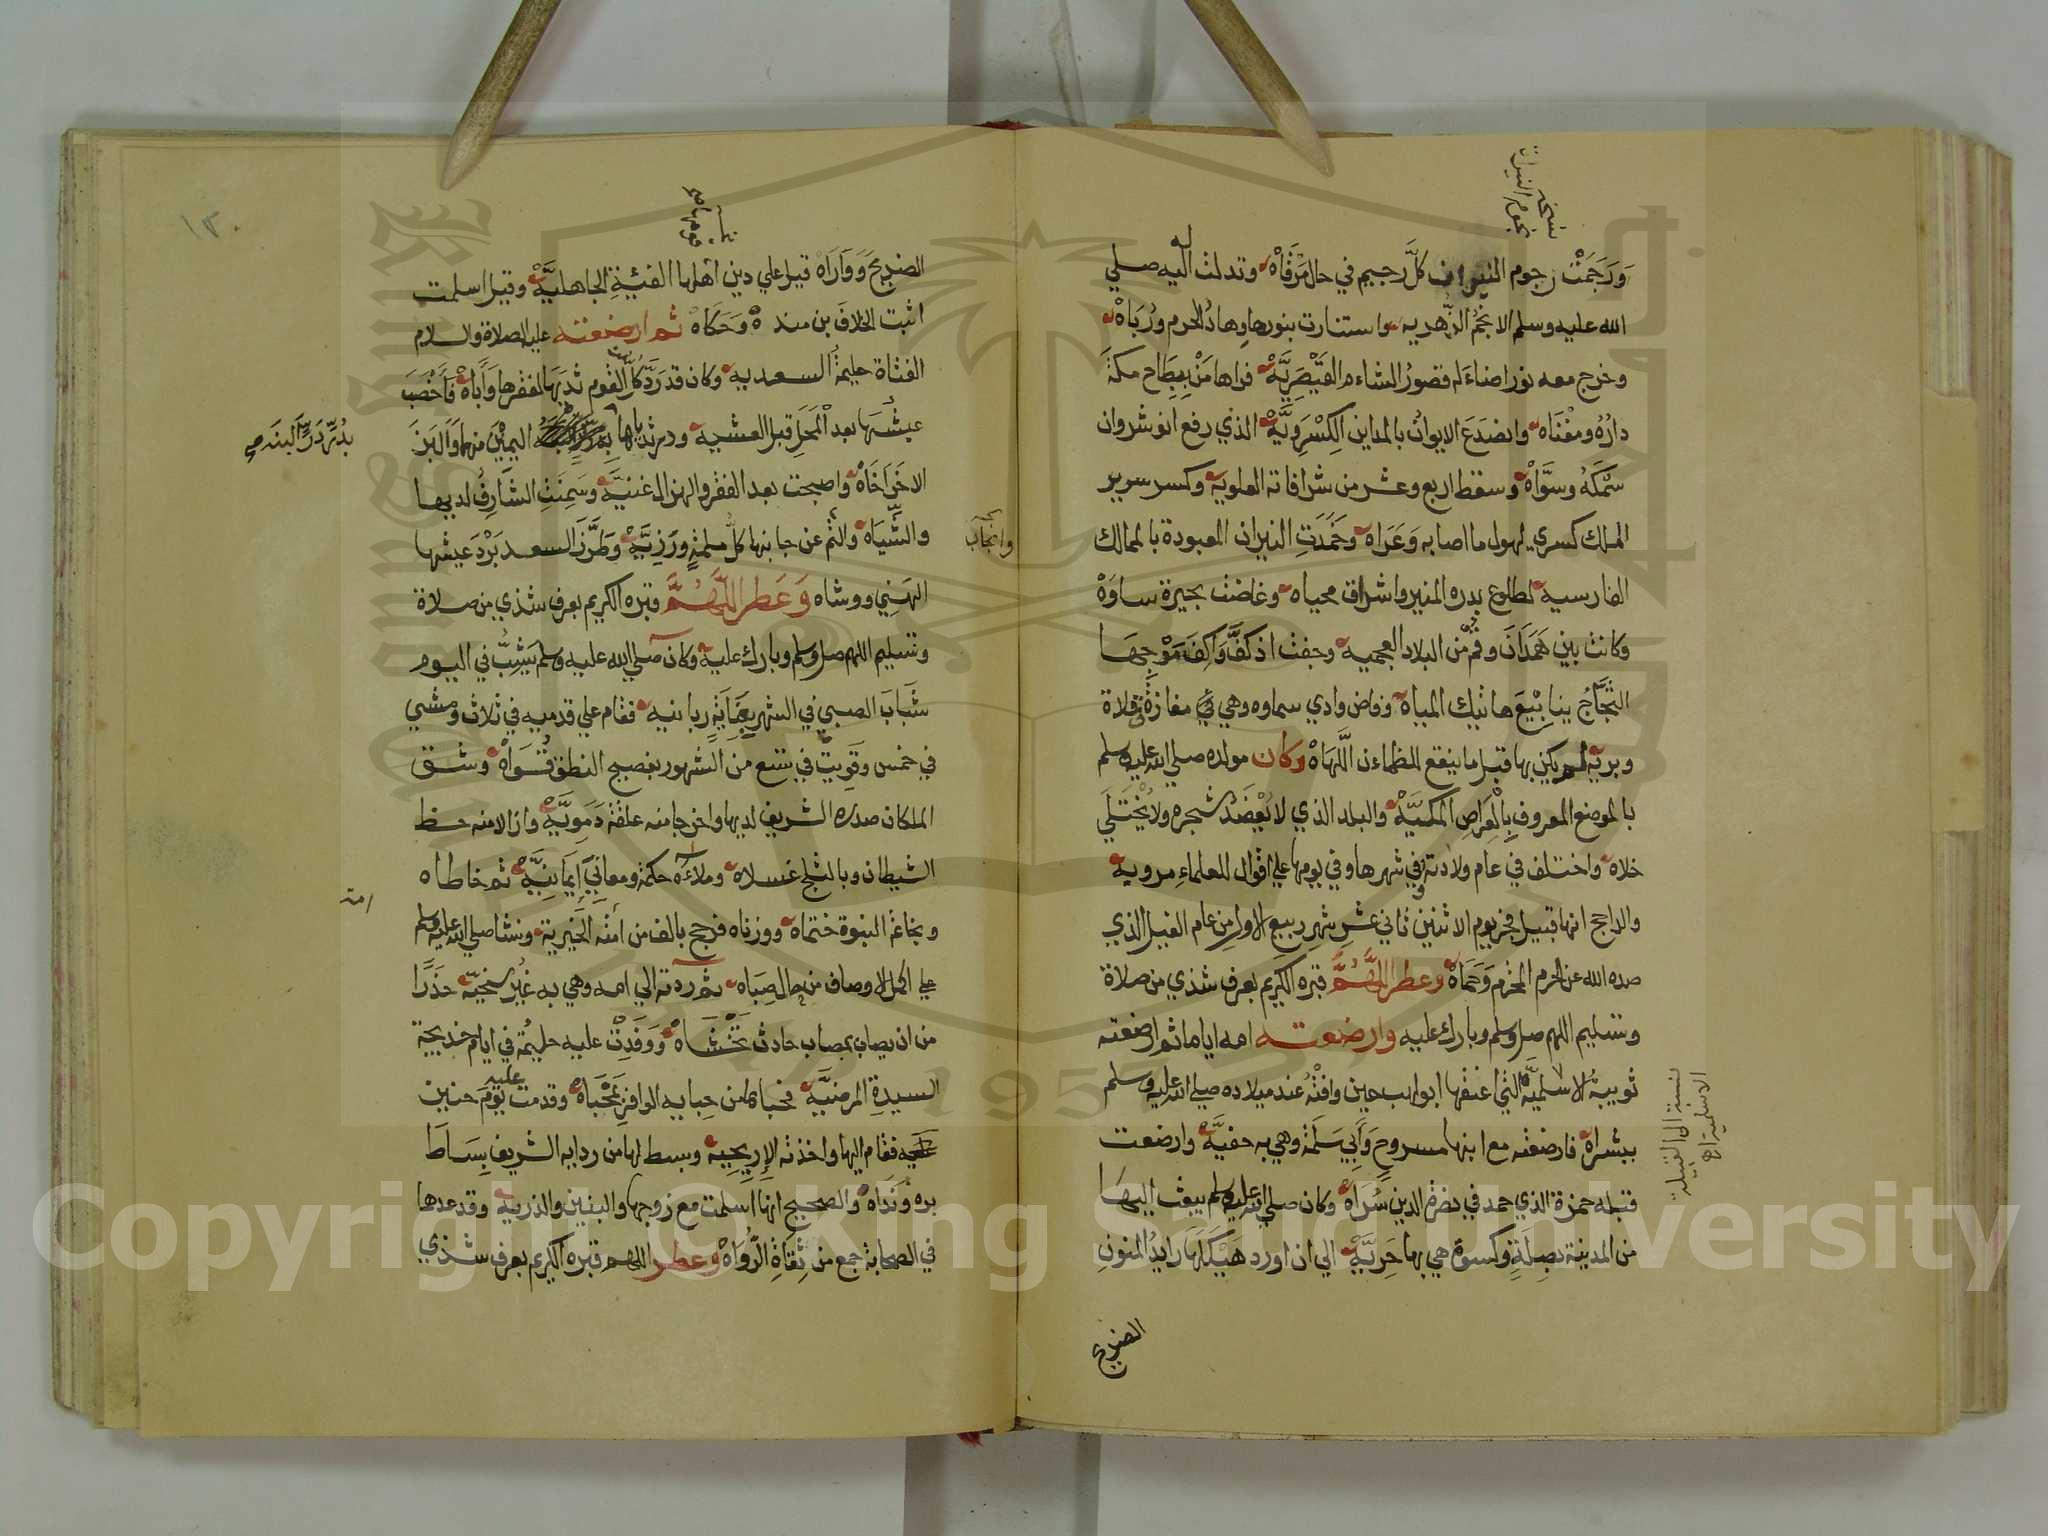 نسخة
نجوم النيرات
وَرَجَمَتْ رجوم النيرات كلَّ رجيم في حال مَرْقَاهْ وتدلت اليه صلي
الله عليه وسلم الانجُمُ الزُّهْريه واستنارت بنورها وِهادُ الحرم ورُبَاهْ
وخرج معه نور اضاءَ له قصورُ الشاءم القَيْصَرِيَّهْ فراها مَنْ بِبِطَاحِ مكةَ
دارُهُ ومغْنَاه وانصَدَعَ الايوانُ بالمداين الكِسْرَوِيَّهْ الذي رفع انوشروان
سَمْكَهُ وسَوَّاهْ وسقط اربع وعشر من شرافاته العلويه وكسر سرير
الملك كسري لهول ما اصابه وَعَرَاه وخَمَدَتِ النيران المعبودة بالممالك
الفارسيه لطلوع بدره المنير واشراق محياه وغاضت بحيرة ساوَهْ
وكانت بين هَمَدَانَ وقُمَّ من البلاد العجميه وجفت اذ كفَّ وَاكِفُ مَوْجِهَا
الثجَّاجُ ينابِيْعَ هاتيك المياه وفاض وادي سماوه وهي مفازة في فلاة
وبريه لم يكن بها قبل ما ينقع للظماءن اللَّهَاهْ وكان مولده صلي الله عليه وسلم
بالموضع المعروف بِالْعِرَاصِ المكيَّهْ والبلد الذي لا يُعْضَدُ شجره ولا يُخْتَلَي
خلاه واختلف في عام ولادته وفي شهرها وفي يومها علي اقوال للعلماءِ مرويه
والراجح انها قبيل فجر يوم الاثنين ثاني عشر شهر ربيع الاول من عام الفيل الذي
صده الله عن الحرم المحرم وَحَمَاهْ وعطر اللَّهُمَّ قبره الكريم بعرف شذي من صلاة
وتسليم اللهم صل وسلم وبارك عليه وارضعته امه اياما ثم ارضعته
ثويبةُ الاسْلميَّةُ التي اعتقها ابو لهب حين وافَتْهُ عند ميلاده صلي الله عليه وسلم
ببشراه فارضعته مع ابنها مسروحٍ وَأَبِي سَلَمَة وهي به حفيَّهْ وارضعت
قبله حمزة الذي حمد في نصرة الدين سُرَاهْ وكان صلي الله عليه وسلم يبعث اليها
من المدينة بصِلَةٍ وكسوة هي بها حَرِيَّهْ الي ان اورد هَيْكَلَهَا رايدُ المنونِ
نسبة الى القبيلة
الاسلمية اه
الضريح
١٣٠
الضريحَ وَوَارَاه قيل علي دين اهلها الفئة الجاهليَّهْ وقيل اسلمت
اثبت الخلاف بن مندهْ وحَكَاهْ ثم ارضعته عليه الصلاة والسلام
الفتاة حليمةُ السعديه وكان قد رَدَّ كلٌّ من القوم ثديَها لفقرها وَأَبَاهْ فَأَخْصَبَ
عيشُها بعد الْمَحْلِ قبل العشيه ودر ثدياها اليمين منهما وَأَلْبَنَ
الاخَرَ اخَاهْ واصبحت بعد الفقر والهزال غنيَّه وسَمِنَتِ الشَّارِفُ لديها
والشِّيَاه وانجاب عن جانبها كلُّ ملمةٍ ورَزِيَّهْ وطَرَّزَ السعد بَرْدَ عيشها
الهَنِيِ ووشاه وَعَطر اللَّهُمَّ قبره الكريم بعرف شذي من صلاة
وتسليم اللهم صل وسلم وبارك عليه وكان صلي الله عليه وسلم يَشِبُّ في اليوم
شَبَابَ الصبي في الشهر بعِنَايَةٍ ربانيه فقام علي قدميه في ثلاث ومشي
في خمس وقَوِيَتْ في تسع من الشهور بفصيح النطق قُوَاهْ وشق
الملكان صدره الشريف لديها واخرجا منه علقة دَمَوِيَّهْ وازالا منه حظ
الشيطان وبالثلج غسلاه وملآه حكمة ومعانِيَ إِيمَانِيَّهْ ثم خاطاه
وبخاتم النبوة ختماه ووزناه فرجح بالف من أمَّته الخيرية ونشا صلي الله عليه وسلم
علي اكمل الاوصاف من حال صِبَاه ثم ردته الي امه وهي به غَيْرُ سخيَّه حَذَرًا
من ان يصاب بمصاب حادث تَخْشَاهْ ووَفَدَتْ عليه حليمُة في ايام خديجة
السيدة المرضيَّه فحباها من حبايه الوافر بمَحْبَاهْ وقدمت عليه يوم حنين
فقام اليها واخذته الإِرِيحِيه وبسط لها من ردايه الشريف بِسَاطَ
بره ونَدَاهْ والصحيح انها اسلمت مع زوجها والبنين والذريه وقد عدهما
في الصحابة جمع من ثِقَاةِ الرُّوَاهْ وعطر اللهم قبره الكريم بعرف شذي
وانجاب
امته
Copyright © King Saud University
1957